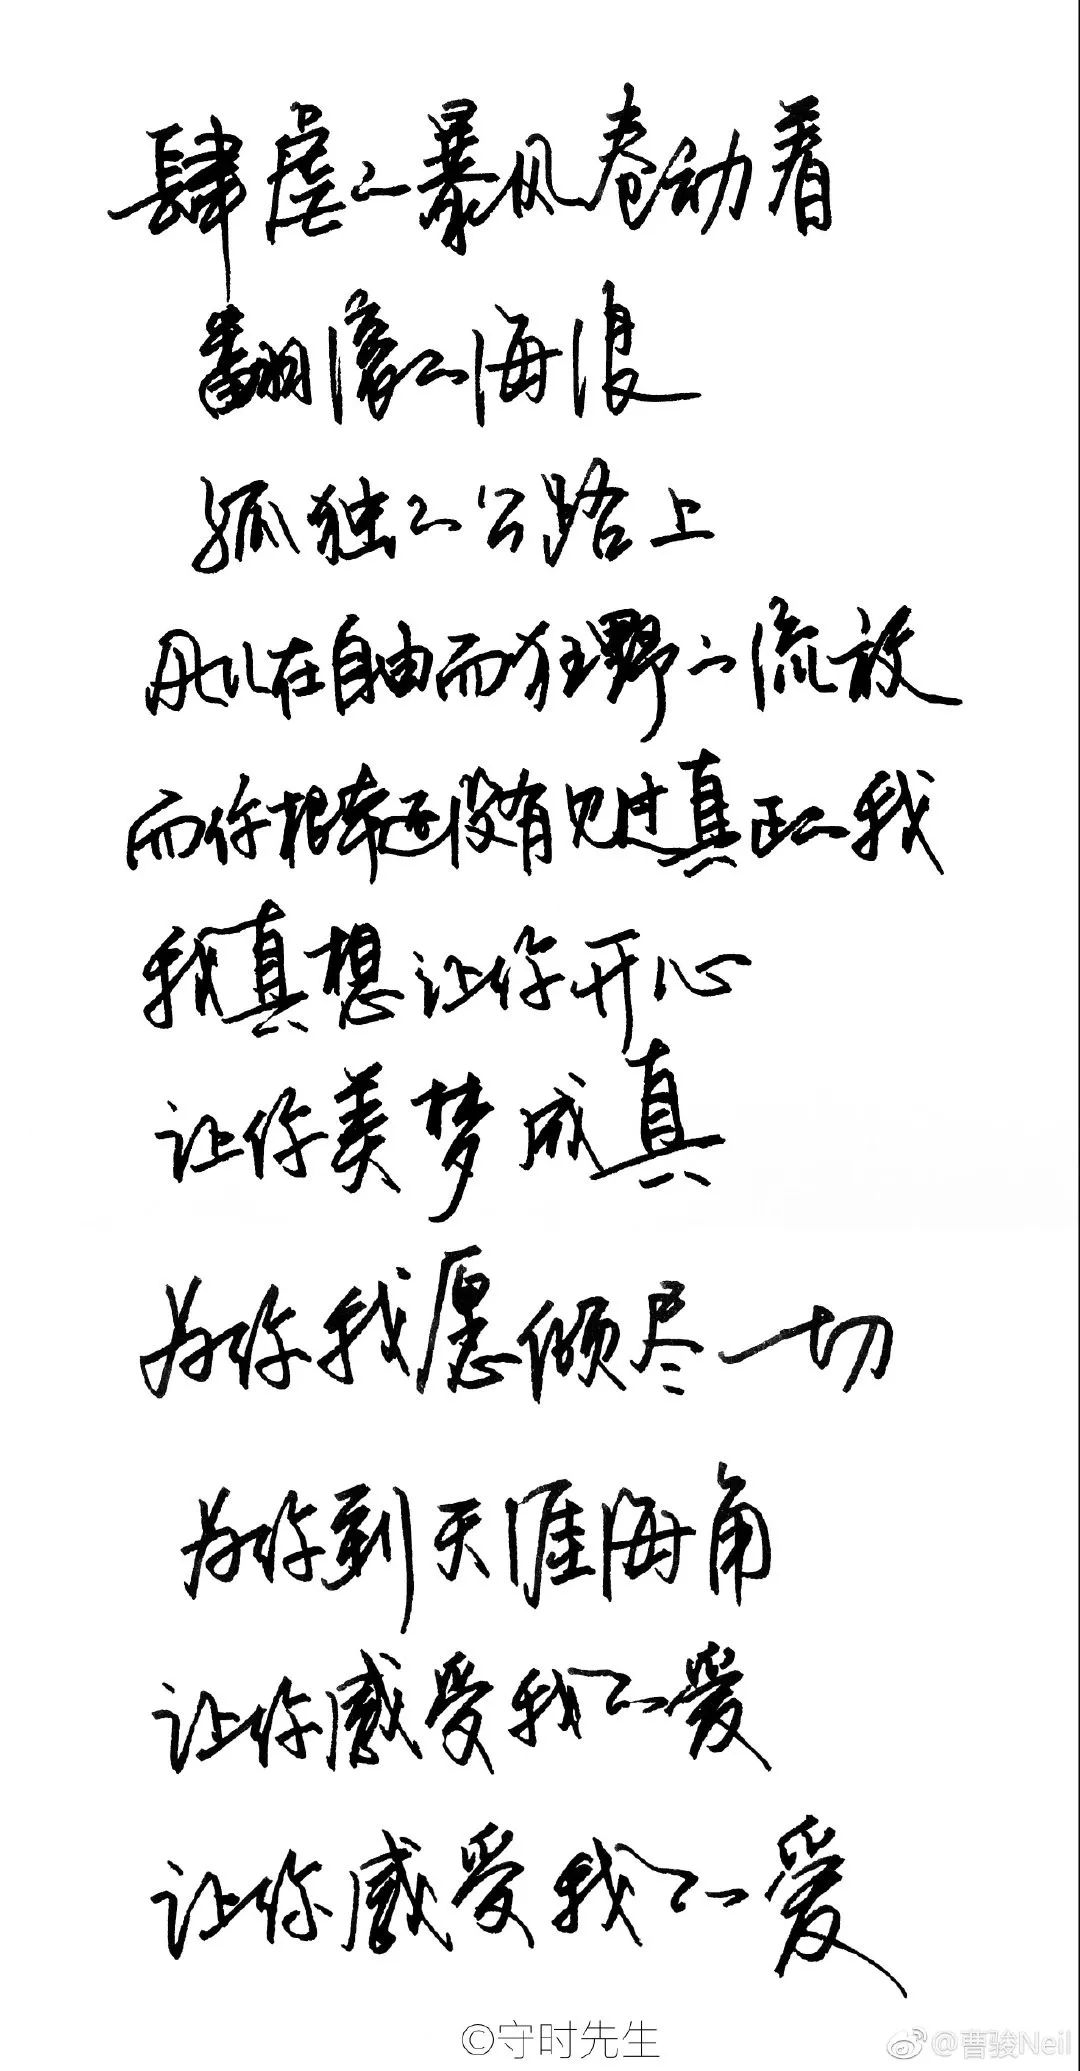 肆虐的暴风卷动着
翻滚的海浪
孤独的公路上
风儿在自由而狂野的流放
而你根本还没有见过真正的我
我真想让你开心
让你美梦成真
为你我愿倾尽一切
为你到天涯海角
让你感受我的爱
让你感受我的爱
©守时先生
@曹骏Neil